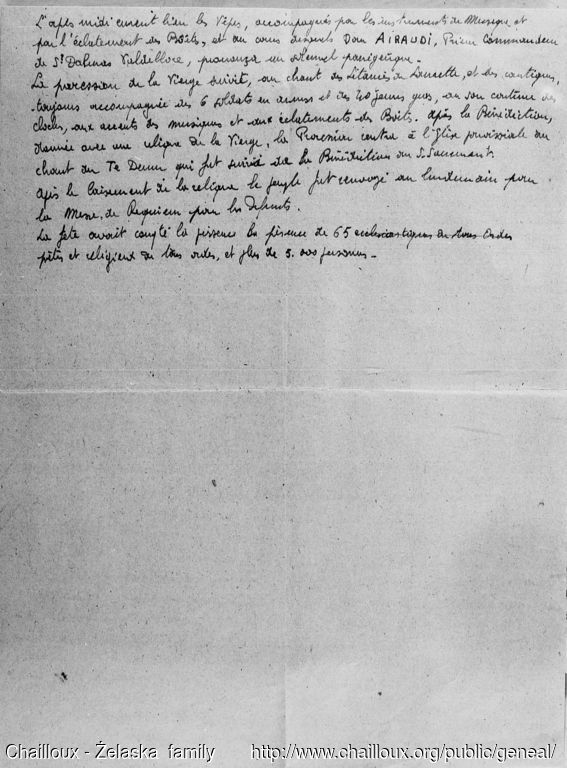 L'après midi eurent lieu les Vêpres, accompagnés par les instruments de Musique et
par l'éclatement des Boîts, et au cours desquels Don AIRAUDI, Prieur Commandeur
de St Dalmas Valdeblore, prononça un solennel panégérique.
La procession de la Vierge suivit, au chant des Litanies de Laurette, et des cantiques,
toujours accompagnée des 6 soldats en armes et des 40 Jeunes gens, au son continu des
cloches, aux accents des musiques et aux éclatements des Boîts. Après la Bénédiction,
donnée avec une relique de la Vierge, la Procession rentra à l'Eglise paroissiale au
chant du Te Deum qui fut suivi de la Bénédiction du S. Sacrement.
Après le baisement de la relique le peuple fut renvoyé au lendemain pour
la Messe de Requiem pour les Défunts.
La fête avait compté la présence de 65 ecclésiastiques de tous Ordes
prêtres et religieux de tous ordes, et plus de 5.000 personnes.
Chailloux - Żelaska family http://www.chailloux.org/public/geneal/